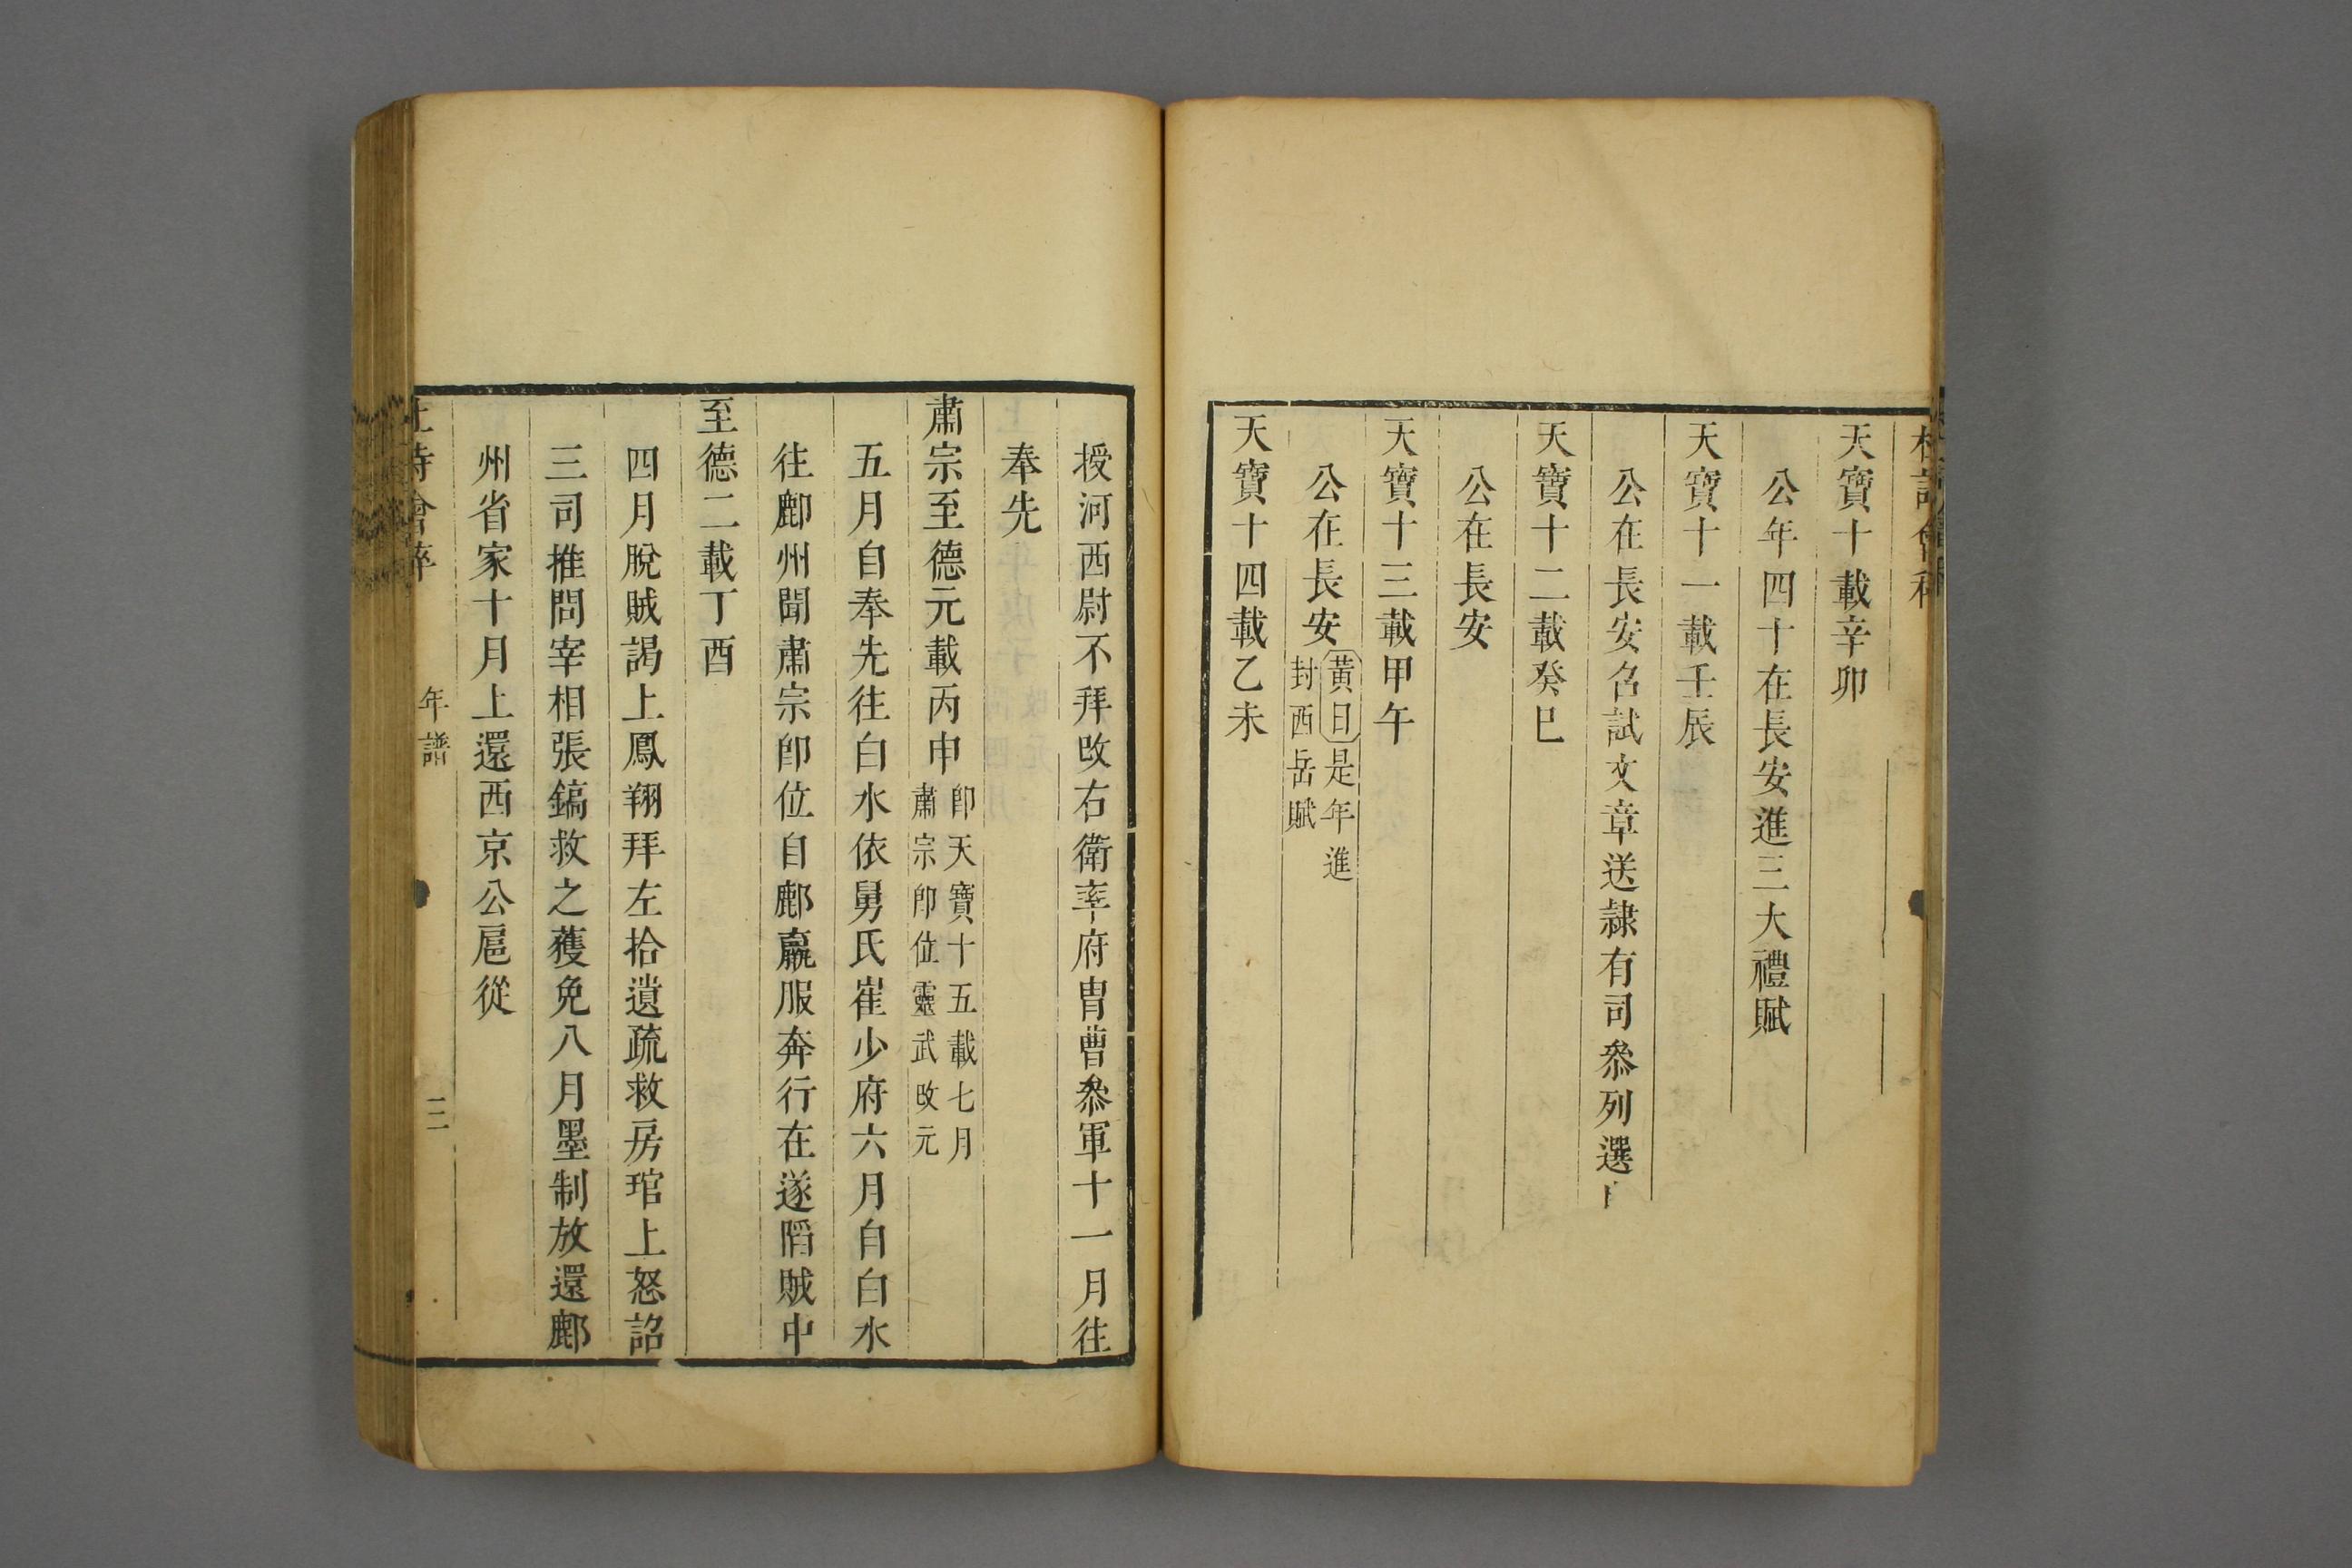 天寶十載辛卯
公年四十在長安進三大禮賦
天寶十一載壬辰
公在長安召試文章送隷有司叅列選
天寶十二載癸巳
公在長安
天寶十三載甲午
公在長安黃曰是年進
封西岳賦
天寶十四載乙未
授河西尉不拜改右衛率府胄曹叅軍十一月往
奉先
肅宗至德元載丙申卽天寶十五載七月
肅宗卽位靈武改元
五月自奉先往白水依舅氏崔少府六月自白水
往鄜州聞肅宗卽位自鄜羸服奔行在遂陷賊中
至德二載丁酉
四月脫賊謁上鳳翔拜左拾遺疏救房琯上怒詔
三司推問宰相張鎬救之獲免八月墨制放還鄜
州省家十月上還西京公扈從
年譜
二